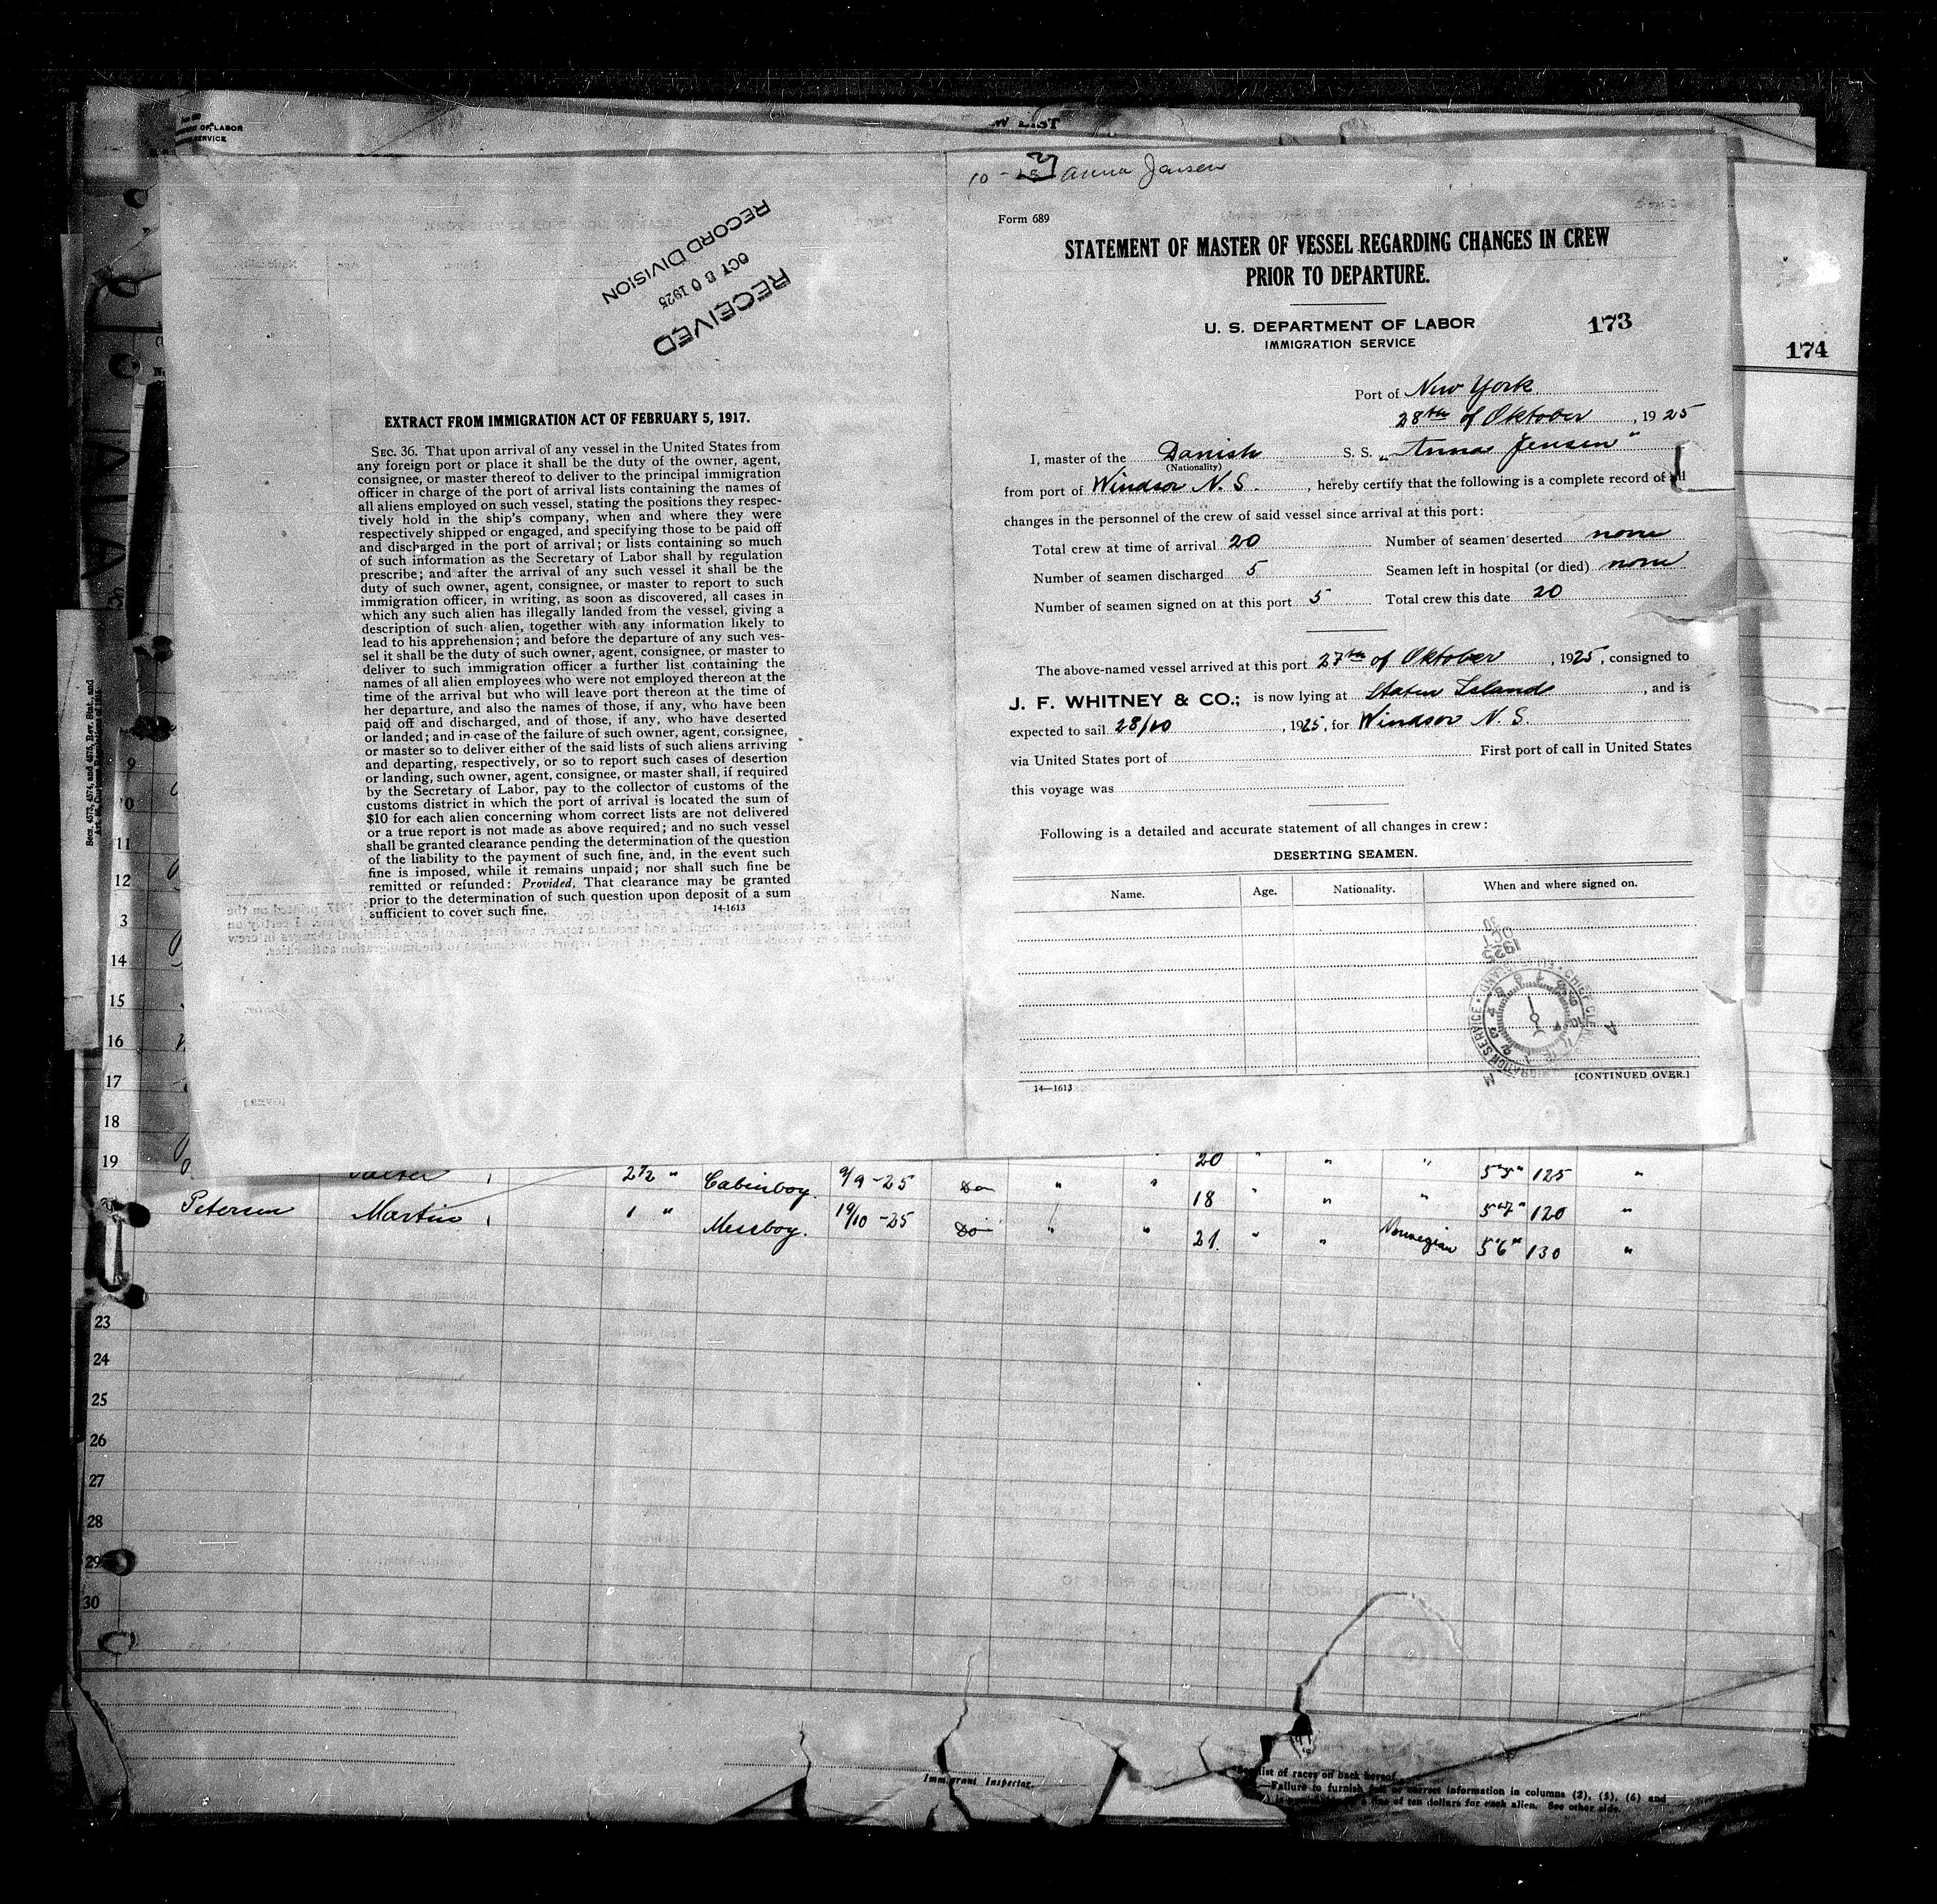 OF LABOR
SERVICE
W LIST
10 - 27 Anna Jensen
RECORD DIVISION
OCT 30 1925
RECEIVED
EXTRACT FROM IMMIGRATION ACT OF FEBRUARY 5, 1917.
SEC. 36. That upon arrival of any vessel in the United States from
any foreign port or place it shall be the duty of the owner, agent,
consignee, or master thereof to deliver to the principal immigration
officer in charge of the port of arrival lists containing the names of
all aliens employed on such vessel, stating the positions they respec-
tively hold in the ship's company, when and where they were
respectively shipped or engaged, and specifying those to be paid off
and discharged in the port of arrival; or lists containing so much
of such information as the Secretary of Labor shall by regulation
prescribe; and after the arrival of any such vessel it shall be the
duty of such owner, agent, consignee, or master to report to such
immigration officer, in writing, as soon as discovered, all cases in
which any such alien has illegally landed from the vessel, giving a
description of such alien, together with any information likely to
lead to his apprehension; and before the departure of any such ves-
sel it shall be the duty of such owner, agent, consignee, or master to
deliver to such immigration officer a further list containing the
names of all alien employees who were not employed thereon at the
time of the arrival but who will leave port thereon at the time of
her departure, and also the names of those, if any, who have been
paid off and discharged, and of those, if any, who have deserted
or landed; and in case of the failure of such owner, agent, consignee,
or master so to deliver either of the said lists of such aliens arriving
and departing, respectively, or so to report such cases of desertion
or landing, such owner, agent, consignee, or master shall, if required
by the Secretary of Labor, pay to the collector of customs of the
customs district in which the port of arrival is located the sum of
$10 for each alien concerning whom correct lists are not delivered
or a true report is not made as above required; and no such vessel
shall be granted clearance pending the determination of the question
of the liability to the payment of such fine, and, in the event such
fine is imposed, while it remains unpaid; nor shall such fine be
remitted or refunded: Provided, That clearance may be granted
prior to the determination of such question upon deposit of a sum
sufficient to cover such fine. 14-1613
Form 689
STATEMENT OF MASTER OF VESSEL REGARDING CHANGES IN CREW
PRIOR TO DEPARTURE.
U. S. DEPARTMENT OF LABOR
IMMIGRATION SERVICE
173
174
Port of New York
28th of Oktober, 1925
I, master of the Danish S. S. "Anna Jensen"
(Nationality)
from port of Windsor N. S., hereby certify that the following is a complete record of all
changes in the personnel of the crew of said vessel since arrival at this port:
Total crew at time of arrival 20 Number of seamen deserted none
Number of seamen discharged 5 Seamen left in hospital (or died) none
Number of seamen signed on at this port 5 Total crew this date 20
The above-named vessel arrived at this port 27th of Oktober, 1925, consigned to
J. F. WHITNEY & CO.; is now lying at Staten Island, and is
expected to sail 28/10, 1925, for Windsor N. S.
via United States port of First port of call in United States
this voyage was
Following is a detailed and accurate statement of all changes in crew:
DESERTING SEAMEN.
Name. Age. Nationality. When and where signed on.
1925
OCT
30
14—1613
[CONTINUED OVER.]
9
10
11
12
3
14
15
16
17
18
19
20 " " " 5'5" 125 "
2 1/2 " Cabinboy. 9/9 -25 Do " " 18 " " " 5'7" 120 "
Petersen Martin 1 " Messboy. 19/10 -25 Do " " 21. " " Norwegian 5'6" 130 "
23
24
25
26
27
28
29
30
Immigrant Inspector.
list of races on back hereof.
—Failure to furnish full or correct information in columns (2), (5), (6) and
of ten dollars for each alien. See other side.